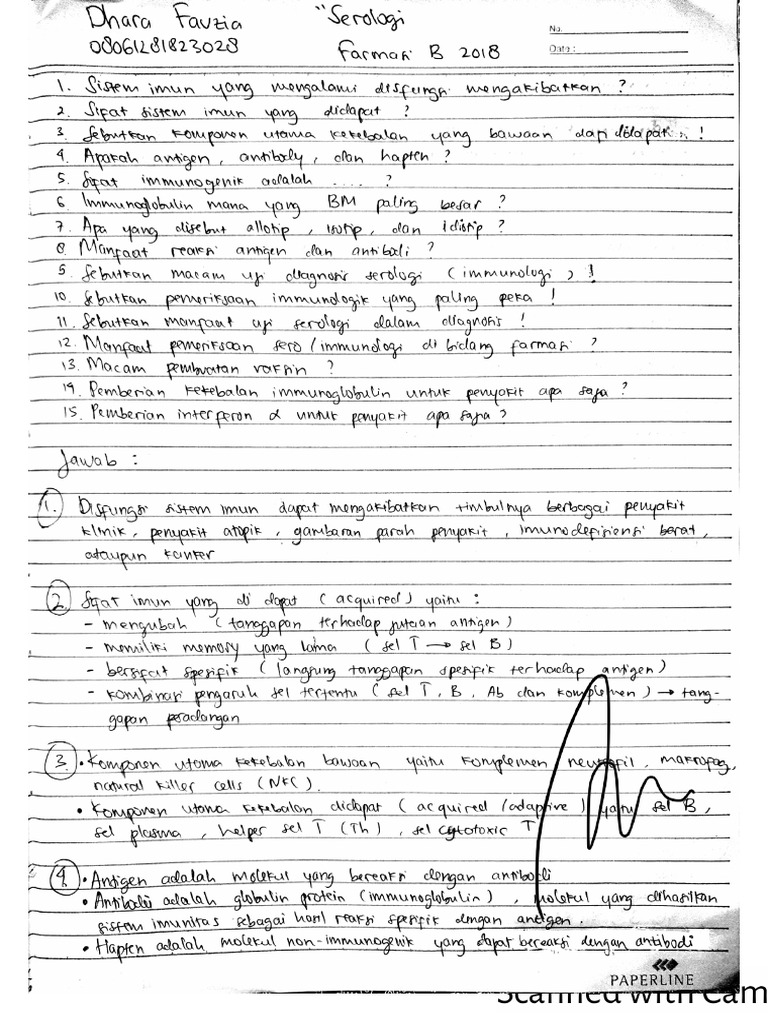 Dhara Fauzia
"Serologi
No.
08061281823028
Farmasi B 2018
Date:
1. Sistem imun yang mengalami disfungsi mengakibatkan ?
2. Sifat sistem imun yang didapat ?
3. Sebutkan komponen utama kekebalan yang bawaan dan didapat !
4. Apakah antigen, antibody, dan hapten ?
5. Sifat immunogenik adalah .... ?
6. Immunoglobulin mana yang BM paling besar ?
7. Apa yang disebut allotip, isotip, dan idiotip ?
8. Manfaat reaksi antigen dan antibodi ?
9. Sebutkan macam uji diagnosis serologi (immunologi) !
10. Sebutkan pemeriksaan immunologik yang paling peka !
11. Sebutkan manfaat uji serologi dalam diagnosis !
12. Manfaat pemeriksaan sero/immunologi di bidang farmasi ?
13. Macam pembuatan vaksin ?
14. Pemberian kekebalan immunoglobulin untuk penyakit apa saja ?
15. Pemberian interferon α untuk penyakit apa saja ?
Jawab :
1. Disfungsi sistem imun dapat mengakibatkan timbulnya berbagai penyakit
klinik, penyakit atopik, gambaran parah penyakit, imunodefisiensi berat,
ataupun kanker
2. Sifat imun yang di dapat (acquired) yaitu :
- mengubah (tanggapan terhadap jutaan antigen)
- memiliki memory yang lama (sel T → sel B)
- bersifat spesifik (langsung tanggapan spesifik terhadap antigen)
- kombinasi pengaruh sel tertentu (sel T, B, Ab dan komplemen) → tang-
gapan peradangan
3. • Komponen utama kekebalan bawaan yaitu komplemen neutrofil, makrofag,
natural killer cells (NKC).
• Komponen utama kekebalan didapat (acquired/adaptive) yaitu sel B,
sel plasma, helper sel T (Th), sel cytotoxic T
4. • Antigen adalah molekul yang bereaksi dengan antibodi
• Antibodi adalah globulin protein (immunoglobulin), molekul yang dihasilkan
sistem imunitas sebagai hasil reaksi spesifik dengan antigen.
• Hapten adalah molekul non-immunogenik yang dapat bereaksi dengan antibodi
PAPERLINE
Scanned with Cam